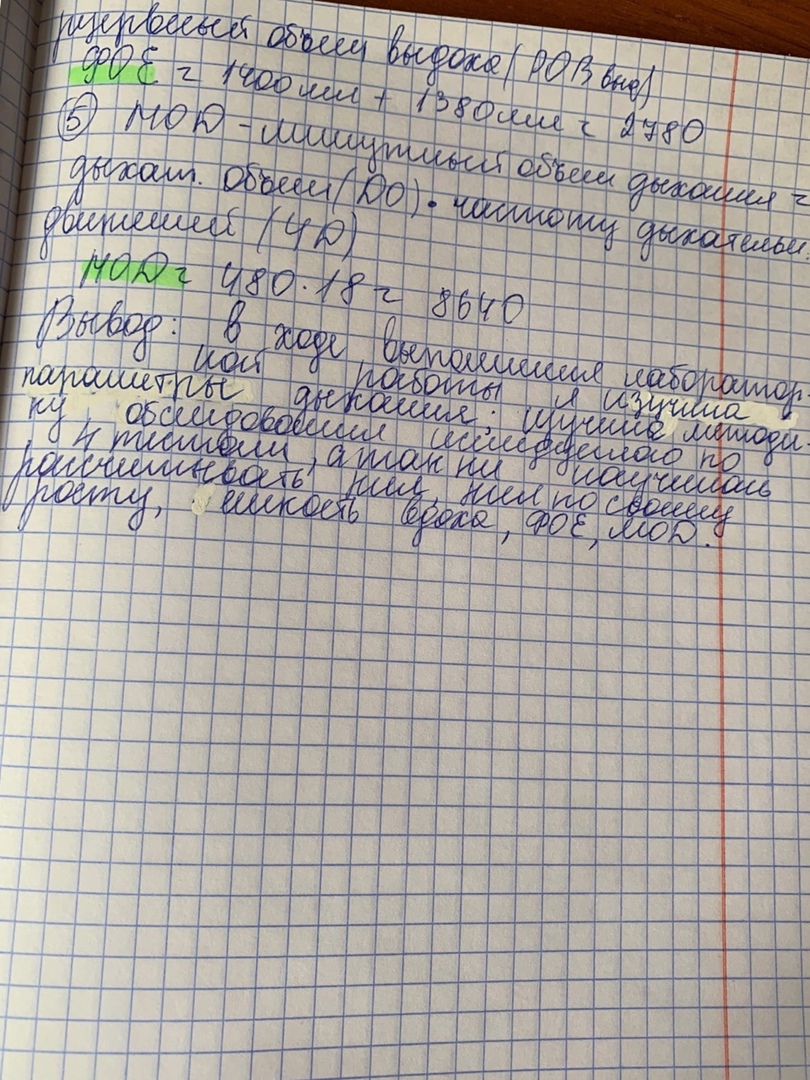 резервный объем выдоха (РОВвыд)
ФОЕ = 1400 мл + 1380 мл = 2780
⑤ МОД - минутный объем дыхания =
дыхат. объем (ДО) • частоту дыхательн.
движений (ЧД)
МОД = 480 · 18 = 8640
Вывод: в ходе выполнения лаборатор-
ной работы я изучила
параметры дыхания; изучила методи-
ку обследования исследуемого по
4 тестам, а так же научилась
рассчитывать ЖЕЛ, ЖЕЛ по своему
росту, емкость вдоха, ФОЕ, МОД.